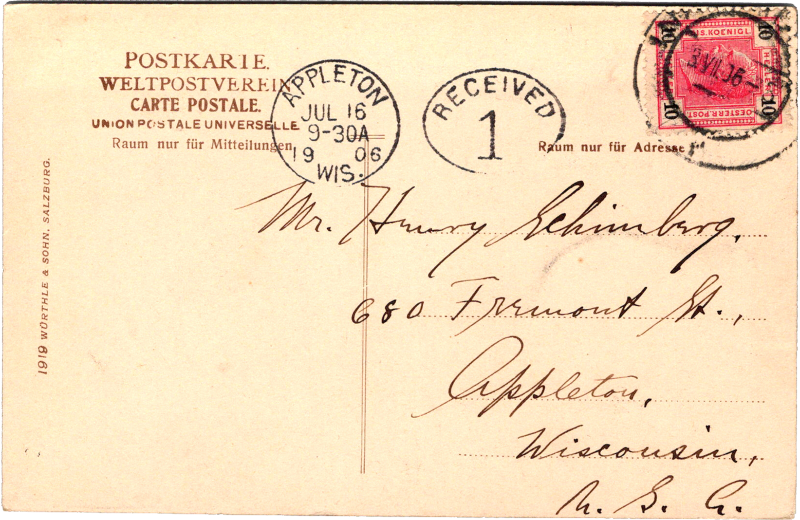 POSTKARTE.
WELTPOSTVEREIN
CARTE POSTALE.
UNION POSTALE UNIVERSELLE
Raum nur für Mitteilungen
APPLETON
JUL 16
9-30A
19 06
WIS.
RECEIVED
1
Raum nur für Adresse
10 10
US. KOENIGL
OESTERR. POST
10 10
Mr. Henry Schimberg,
680 Fremont St.,
Appleton,
Wisconsin,
U. S. A.
1919 WÜRTHLE & SOHN, SALZBURG.